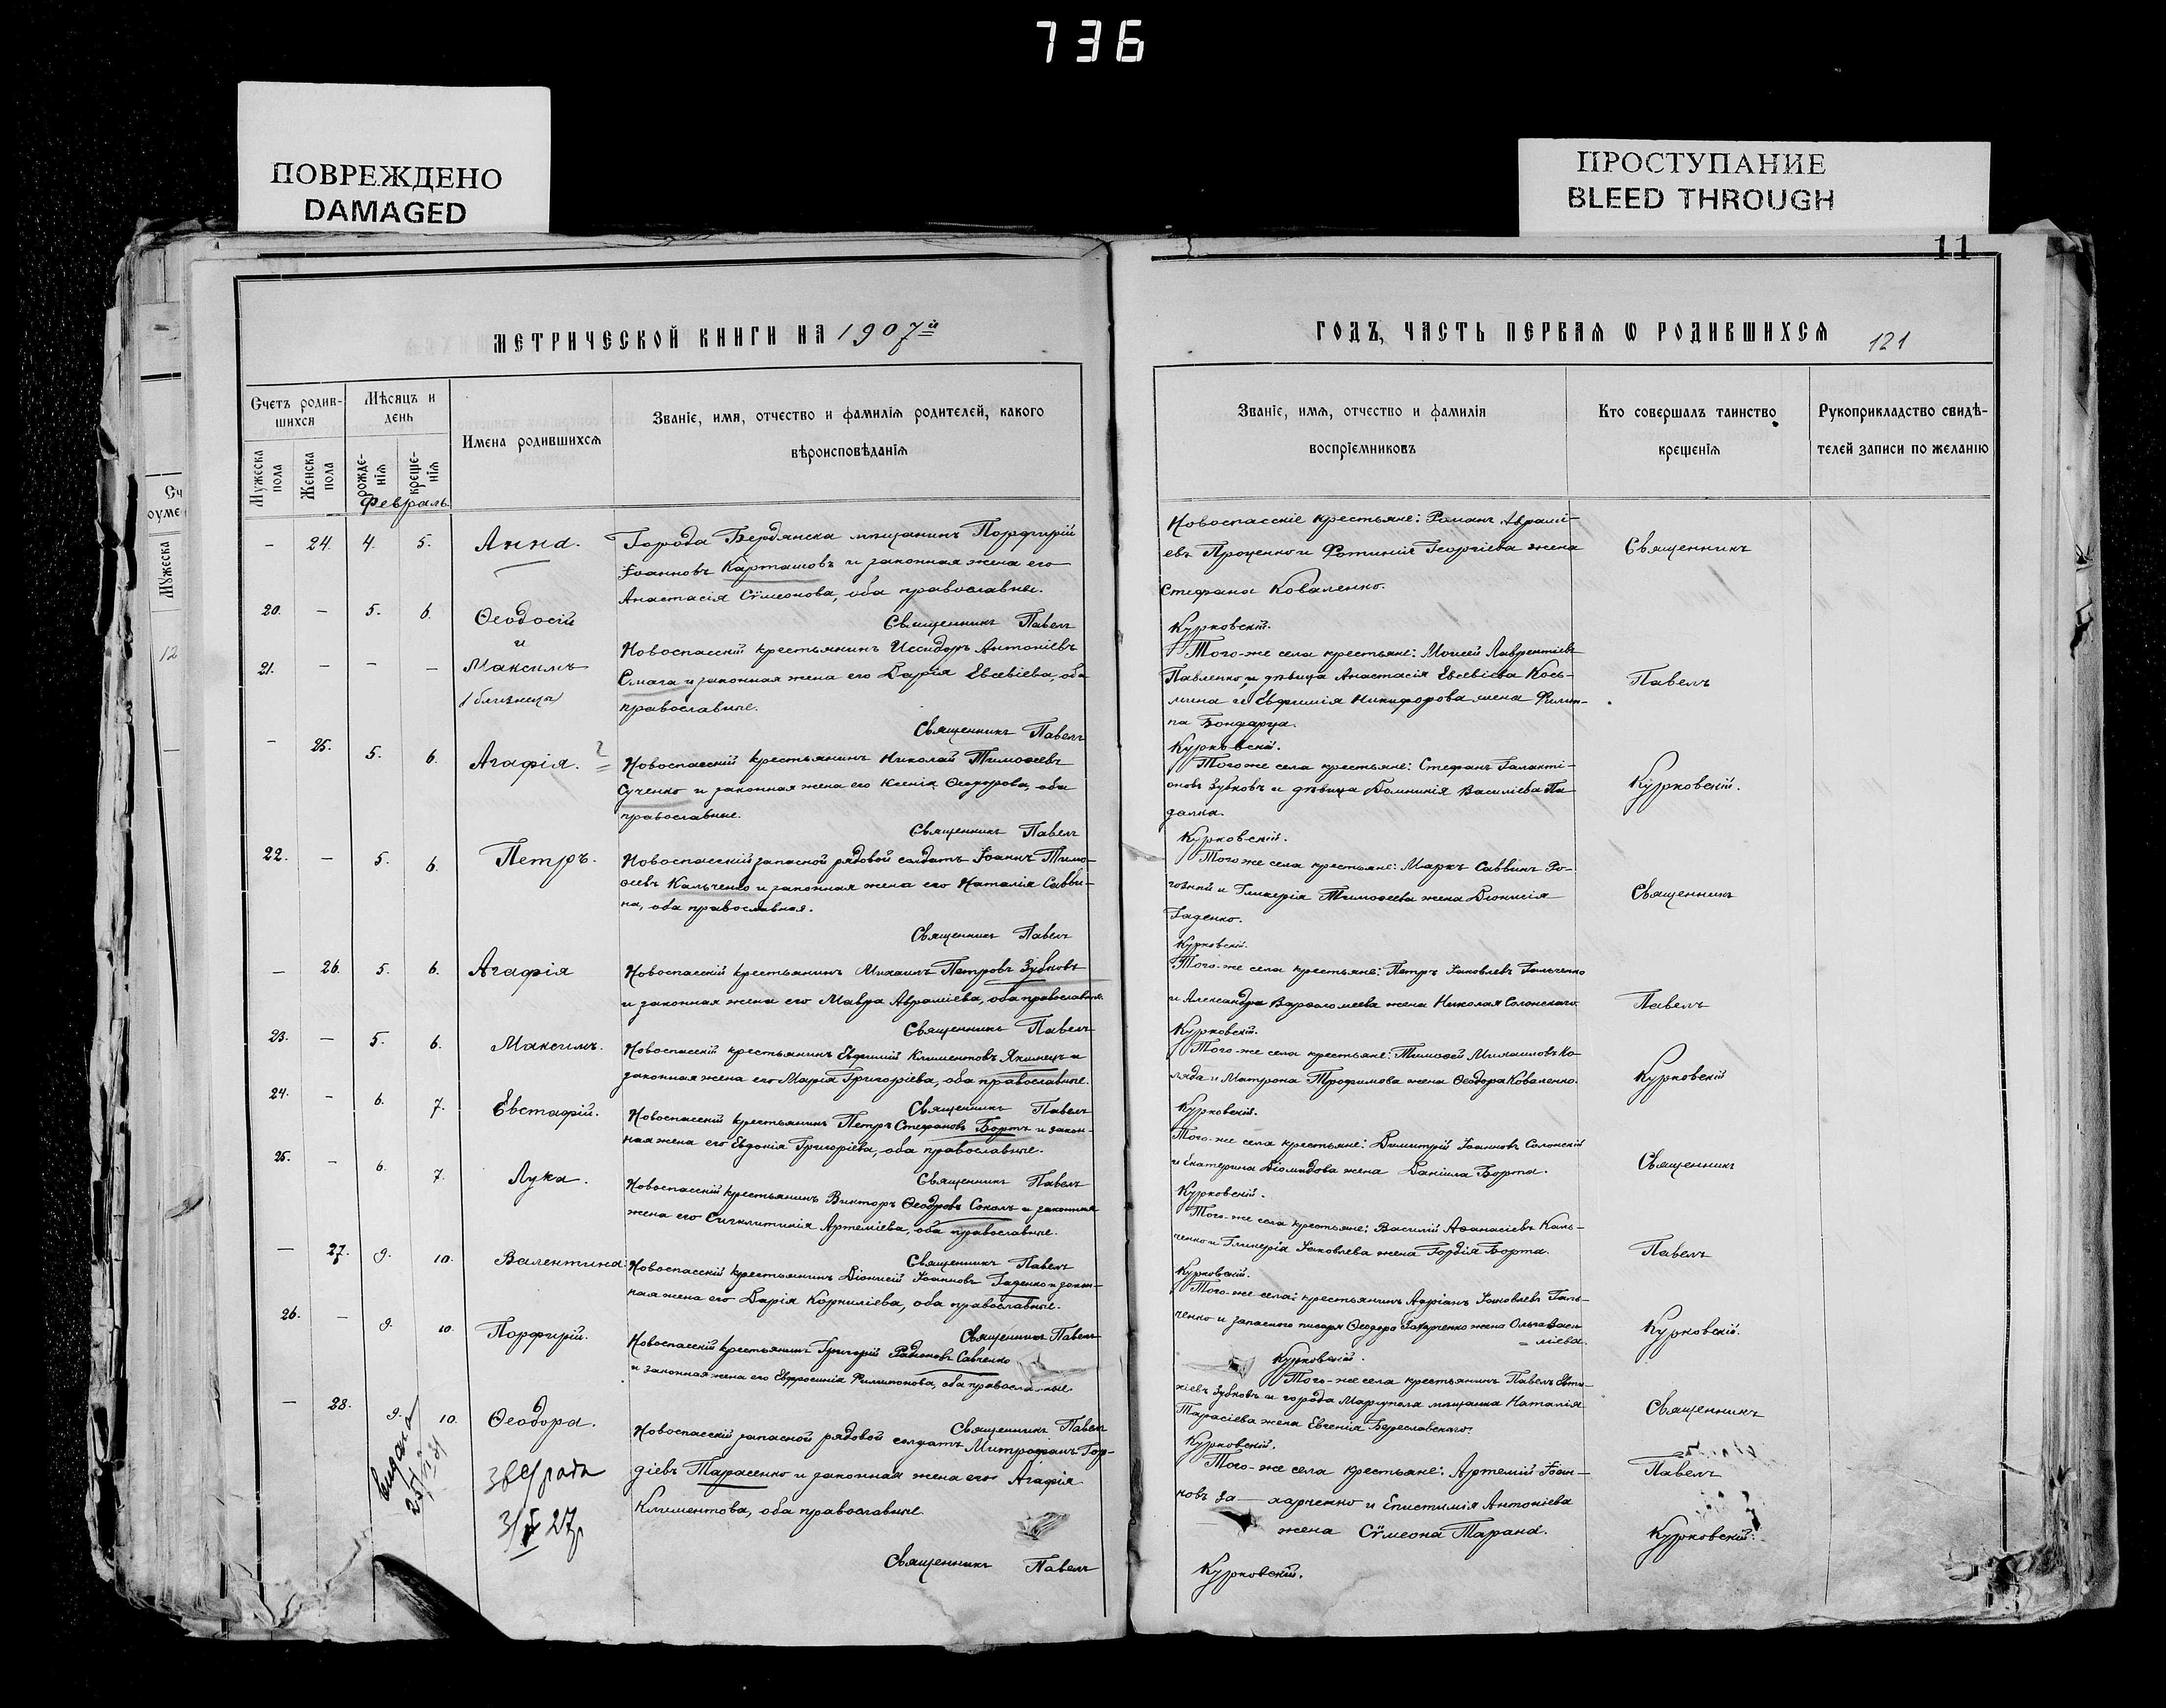 736
ПОВРЕЖДЕНО
DAMAGED
ПРОСТУПАНИЕ
BLEED THROUGH
11
МЕТРИЧЕСКОЙ КНИГИ НА 1907й
Счетъ родив-
шихся
Мѣсяцъ и
день
Имена родившихся
Званіе, имя, отчество и фамилія родителей, какого
вѣроисповѣданія
Мужеска
пола
Женска
пола
рожде-
нія
креще-
нія
Февраль
– 24. 4. 5. Анна.
Города Бердянска мѣщанинъ Порфирій
Іоанновъ Карташовъ и законная жена его
Анастасія Сѵмеонова, оба православны.
Священникъ Павелъ
20. – 5. 6. Ѳеодосій
и
21. – – – Максимъ
(близнецы)
Новоспасскій крестьянинъ Исидоръ Антоніевъ
Смага и законная жена его Дарія Евсевіева, оба
православные.
Священникъ Павелъ
– 25. 5. 6. Агафія.
Новоспасскій крестьянинъ Николай Тимоѳеевъ
Сученко и законная жена его Ксенія Ѳеодорова, оба
православные.
Священникъ Павелъ
22. – 5. 6. Петръ.
Новоспасскій запасной рядовой солдатъ Іоаннъ Тимо-
ѳеевъ Кальченко и законная жена его Наталія Савви-
на, оба православная.
Священникъ Павелъ
– 26. 5. 6. Агафія
Новоспасскій крестьянинъ Михаилъ Петровъ Зубковъ
и законная жена его Мавра Авраміева, оба православные.
Священникъ Павелъ
23. – 5. 6. Максимъ.
Новоспасскій крестьянинъ Евфимій Климентовъ Якимецъ и
законная жена его Марія Григоріева, оба православные.
Священникъ Павелъ
24. – 6. 7. Евстафій.
Новоспасскій крестьянинъ Петръ Стефановъ Бортъ и закон-
ная жена его Евдокія Григоріева, оба православные.
Священникъ Павелъ
25. – 6. 7. Лука.
Новоспасскій крестьянинъ Викторъ Ѳеодоровъ Соколъ и законная
жена его Сигклитикія Артеміева, оба православные.
Священникъ Павелъ
– 27. 9. 10. Валентина.
Новоспасскій крестьянинъ Діонисій Іоанновъ Гаденко и закон-
ная жена его Дарія Корниліева, оба православные.
Священникъ Павелъ
26. – 9. 10. Порфирій.
Новоспасскій крестьянинъ Григорій Радіоновъ Савченко
и законная жена его Евфросинія Филимонова, оба православные.
Священникъ Павелъ
– 28. 9. 10. Ѳеодора.
Новоспасскій запасной рядовой солдатъ Митрофанъ Гор-
діевъ Тарасенко и законная жена его Агафія
Климентова, оба православные.
Священникъ Павелъ
ГОДЪ, ЧАСТЬ ПЕРВАЯ Ѡ РОДИВШИХСЯ 121
Званіе, имя, отчество и фамилія
воспріемниковъ
Кто совершалъ таинство
крещенія
Рукоприкладство свидѣ-
телей записи по желанію
Новоспасскіе крестьяне: Романъ Аврамі-
евъ Проценко и Фотинія Георгіева жена
Стефана Коваленко.
Курковскій.
Священникъ
Того-же села крестьяне: Моисей Лаврентіевъ
Павленко, и дѣвица Анастасія Евсевіева Кось-
мина и Евфимія Никифорова жена Филип-
па Бондарца.
Курковскій.
Павелъ
Того же села крестьяне: Стефанъ Галакті-
оновъ Зубковъ и дѣвица Домникія Василіева Па
далка.
Курковскій.
Курковскій.
Того же села крестьяне: Маркъ Саввинъ Ро-
гозный и Гликерія Тимоѳеева жена Діонисія
Гаденко.
Курковскій.
Священникъ
Того-же села крестьяне: Петръ Іаковлевъ Гальченко
и Александра Варѳоломеева жена Николая Солонскаго.
Курковскій.
Павелъ
Того-же села крестьяне: Тимоѳей Михаиловъ Ко-
ляда и Матрона Трофимова жена Ѳеодора Коваленко.
Курковскій.
Курковскій
Того-же села крестьяне: Димитрій Іоанновъ Солонскій
и Екатерина Діомидова жена Даніила Борта.
Курковскій.
Священникъ
Того-же села крестьяне: Василій Аѳанасіевъ Каль-
ченко и Гликерія Іаковлева жена Гордія Борта.
Курковскій.
Павелъ
Того-же села: крестьянинъ Адріанъ Іаковлевъ Галь-
ченко и запасного писаря Ѳеодора Захарченко жена Ольга Васи-
= ліева.
Курковскій.
Курковскій.
Того-же села крестьянинъ Павелъ Евти-
хіевъ Зубковъ и города Маріуполя мѣщанка Наталія
Тарасіева жена Евгенія Береславскаго.
Курковскій.
Священникъ
Того-же села крестьяне: Артемій Іоан-
новъ За— харченко и Епистимія Антоніева
жена Сѵмеона Тарана.
Курковскій.
Павелъ
Курковскій.